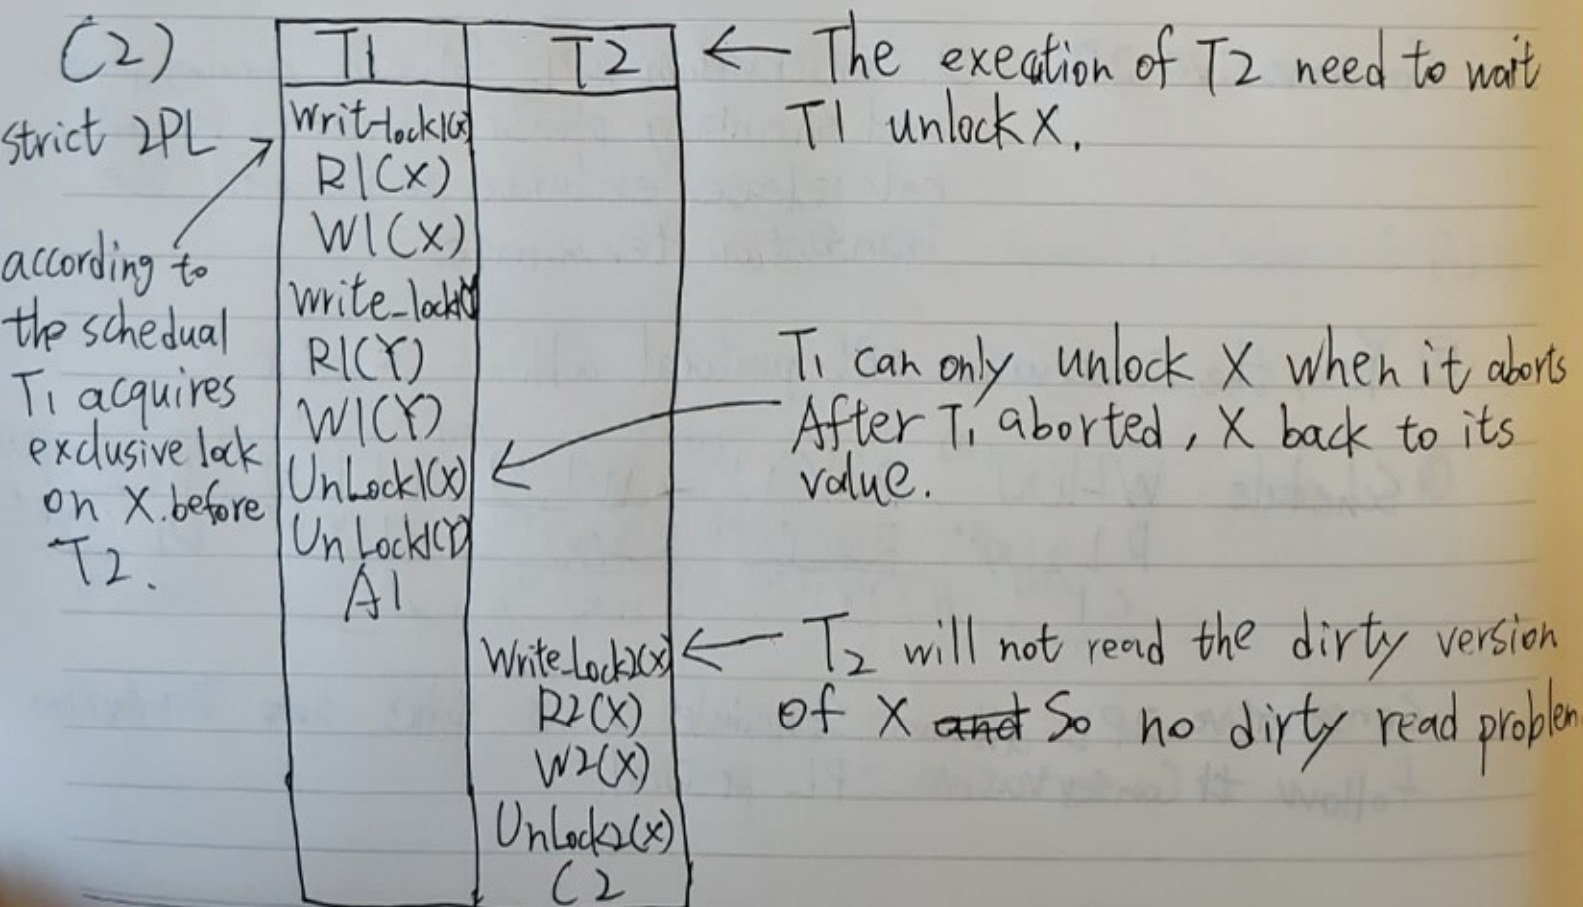 (2)
strict 2PL
according to
the schedual
T1 acquires
exclusive lock
on X.before
T2.
T1 T2
Writ-lock1(x)
R1(X)
W1(X)
Write-lock1(Y)
R1(Y)
W1(Y)
UnLock1(X)
UnLock1(Y)
A1
Write-Lock2(x)
R2(X)
W2(X)
UnLock2(X)
C2
← The execution of T2 need to wait
T1 unlock X.
T1 can only unlock X when it aborts
After T1 aborted, X back to its
value.
T2 will not read the dirty version
of X and So no dirty read problem